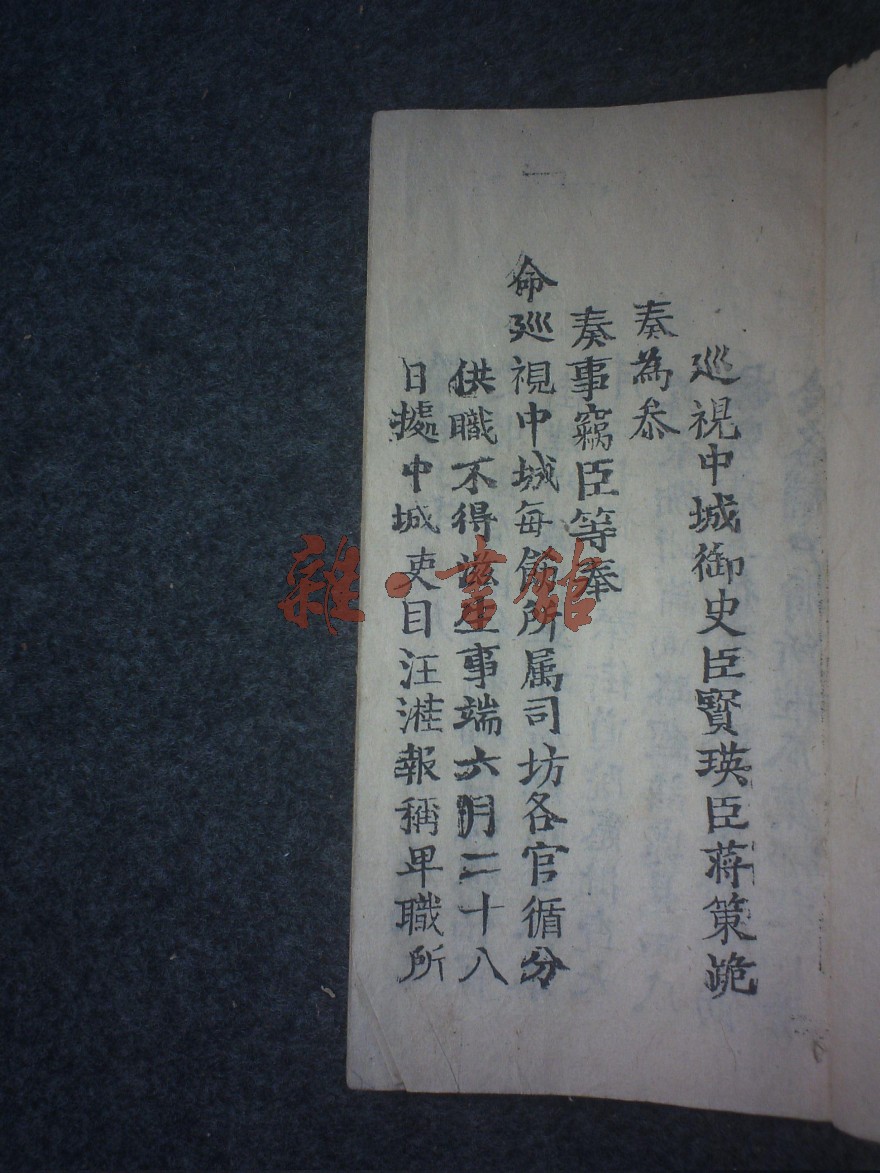 巡視中城御史臣賢瑛臣蔣策跪
奏為叅
奏事竊臣等奉
命巡視中城每飭所属司坊各官循分
供職不得滋生事端六月二十八
日據中城吏目汪漋報稱卑職所
雜·書館